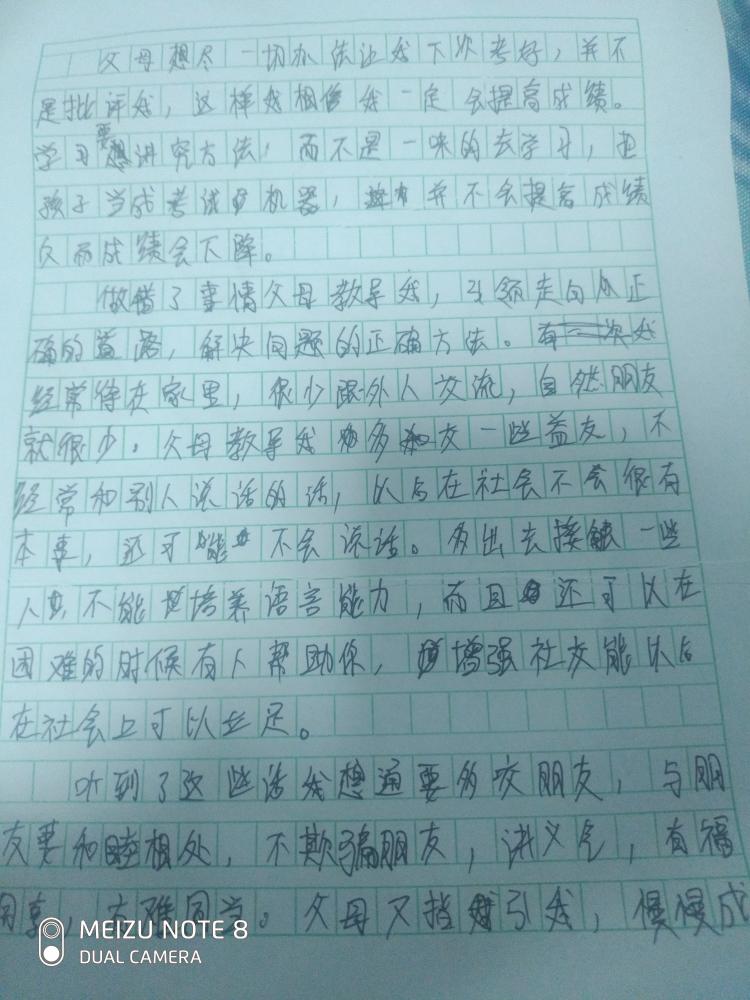 父母想尽一切办法让我下次考好，并不
是批评我，这样我相信我一定会提高成绩。
学习要讲究方法，而不是一味的去学习，把
孩子当成考试机器，并不会提高成绩
久而成绩会下降。
做错了事情父母教导我，引领走向正
确的道路，解决问题的正确方法。我
经常待在家里，很少跟外人交流，自然朋友
就很少。父母教导我多交一些益友，不
经常和别人说话的话，以后在社会不会很有
本事，还可能不会说话。多出去接触一些
人不能培养语言能力，而且还可以在
困难的时候有人帮助你，增强社交能以后
在社会上可以立足。
听到了这些话我想通要多交朋友，与朋
友要和睦相处，不欺骗朋友，讲义气，有福
同享，有难同当。父母又指引我，慢慢成
MEIZU NOTE 8
DUAL CAMERA